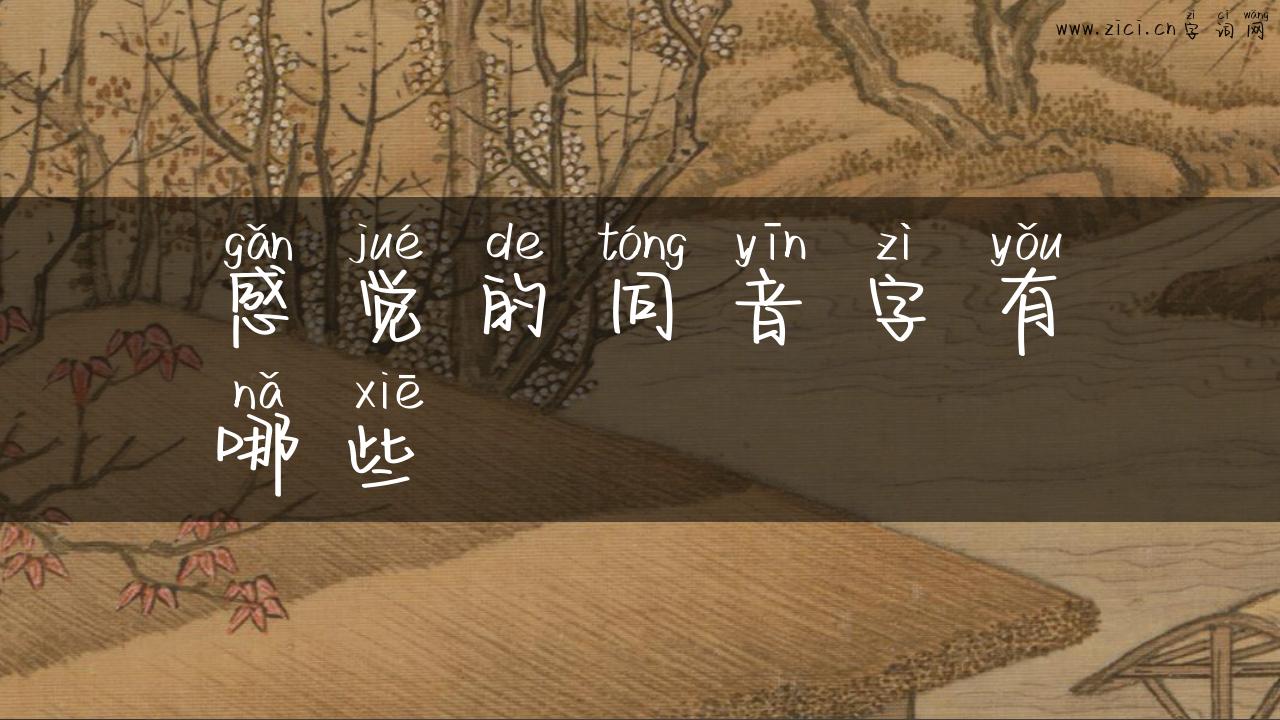 zì cí wǎng
www.zici.cn字词网
gǎn jué de tóng yīn zì yǒu
感觉的同音字有
nǎ xiē
哪些